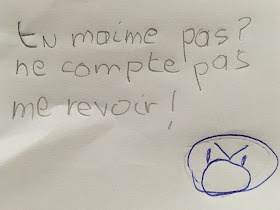 tu maime pas?
ne compte pas
me revoir!